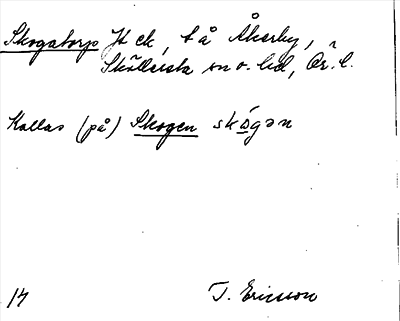 Skogatorp Jt ck, t å Åkerby,
Sköllersta sn o. hd, Ör. l.
Kallas (på) Skogen skógən
14 T. Ericsson